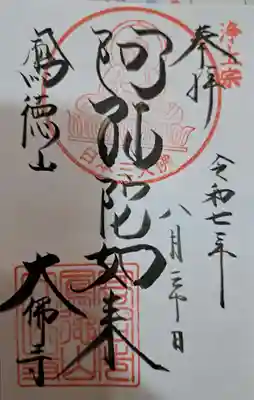 浄土宗
奉拝
令和七年
八月二十日
阿弥陀如来
日本三大佛
鳳徳山
大佛寺